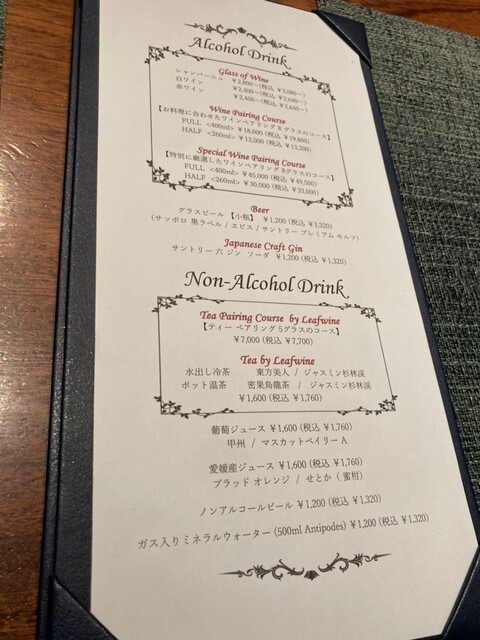 Alcohol Drink
Glass of Wine
シャンパーニュ ￥2,800～(税込 ￥3,080～)
白ワイン ￥2,400～(税込 ￥2,640～)
赤ワイン ￥2,400～(税込 ￥2,640～)
Wine Pairing Course
【お料理に合わせたワインペアリング 8 グラスのコース】
FULL <400ml> ￥18,000 (税込 ￥19,800)
HALF <260ml> ￥12,000 (税込 ￥13,200)
Special Wine Pairing Course
【特別に厳選したワインペアリング 8グラスのコース】
FULL <400ml> ￥45,000 (税込 ￥49,500)
HALF <260ml> ￥30,000 (税込 ￥33,000)
Beer
グラスビール 【小瓶】 ￥1,200 (税込 ￥1,320)
(サッポロ 黒ラベル / ヱビス / サントリー プレミアム モルツ)
Japanese Craft Gin
サントリー 六 ジン ソーダ ￥1,200 (税込 ￥1,320)
Non-Alcohol Drink
Tea Pairing Course by Leafwine
【ティー ペアリング 5グラスのコース】
￥7,000 (税込 ￥7,700)
Tea by Leafwine
水出し冷茶 東方美人 / ジャスミン杉林渓
ポット温茶 密果烏龍茶 / ジャスミン杉林渓
￥1,600 (税込 ￥1,760)
葡萄ジュース ￥1,600 (税込 ￥1,760)
甲州 / マスカットベイリーA
愛媛産ジュース ￥1,600 (税込 ￥1,760)
ブラッド オレンジ / せとか ( 蜜柑)
ノンアルコールビール ￥1,200 (税込 ￥1,320)
ガス入りミネラルウォーター (500ml Antipodes) ￥1,200 (税込 ￥1,320)